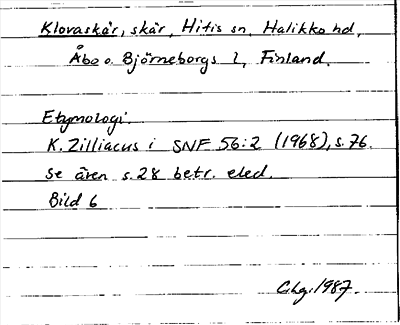 Klovaskär, skär, Hitis sn, Halikko hd,
Åbo o. Björneborgs l, Finland.
Etymologi.
K. Zilliacus i SNF 56:2 (1968), s. 76.
Se även s. 28 betr. eled.
Bild 6
Chg. 1987.